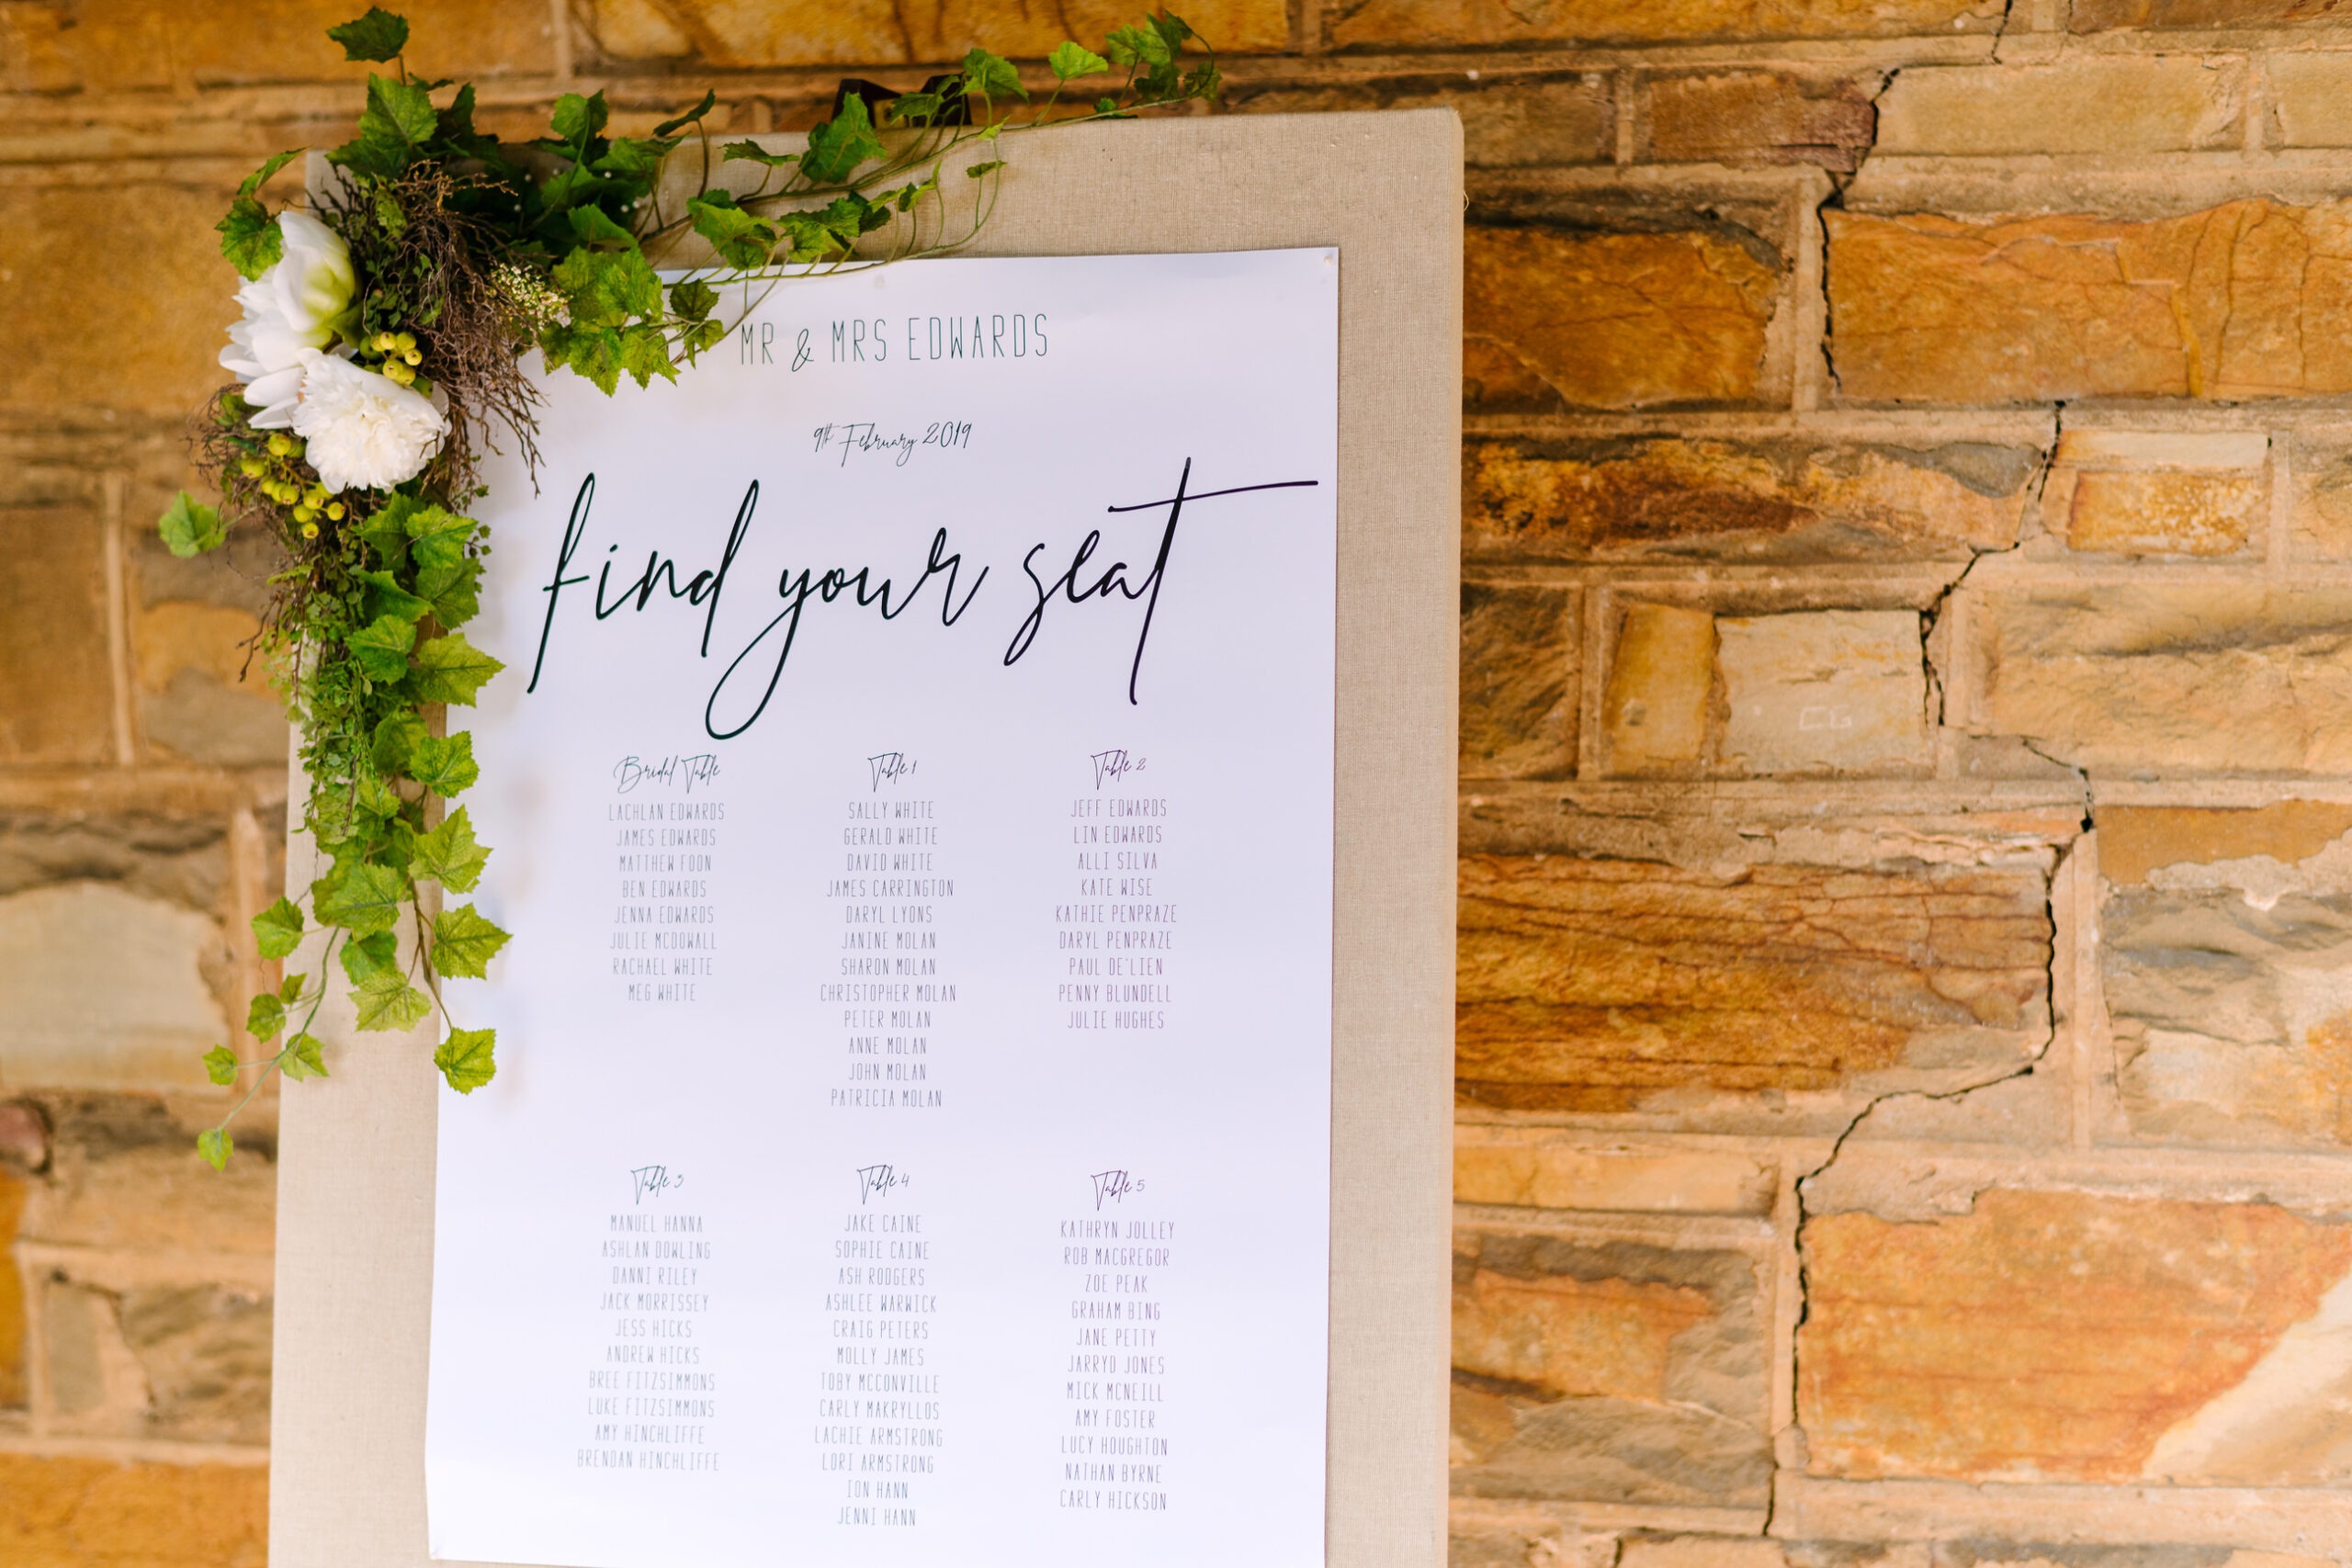 MR & MRS EDWARDS
9th February 2019
find your seat
Bridal Table
LACHLAN EDWARDS
JAMES EDWARDS
MATTHEW FOON
BEN EDWARDS
JENNA EDWARDS
JULIE MCDOWALL
RACHAEL WHITE
MEG WHITE
Table 1
SALLY WHITE
GERALD WHITE
DAVID WHITE
JAMES CARRINGTON
DARYL LYONS
JANINE MOLAN
SHARON MOLAN
CHRISTOPHER MOLAN
PETER MOLAN
ANNE MOLAN
JOHN MOLAN
PATRICIA MOLAN
Table 2
JEFF EDWARDS
LIN EDWARDS
ALLI SILVA
KATE WISE
KATHIE PENPRAZE
DARYL PENPRAZE
PAUL DE'LIEN
PENNY BLUNDELL
JULIE HUGHES
Table 3
MANUEL HANNA
ASHLAN DOWLING
DANNI RILEY
JACK MORRISSEY
JESS HICKS
ANDREW HICKS
BREE FITZSIMMONS
LUKE FITZSIMMONS
AMY HINCHLIFFE
BRENDAN HINCHLIFFE
Table 4
JAKE CAINE
SOPHIE CAINE
ASH RODGERS
ASHLEE WARWICK
CRAIG PETERS
MOLLY JAMES
TOBY MCCONVILLE
CARLY MAKRYLLOS
LACHIE ARMSTRONG
LORI ARMSTRONG
ION HANN
JENNI HANN
Table 5
KATHRYN JOLLEY
ROB MACGREGOR
ZOE PEAK
GRAHAM BING
JANE PETTY
JARRYD JONES
MICK MCNEILL
AMY FOSTER
LUCY HOUGHTON
NATHAN BYRNE
CARLY HICKSON